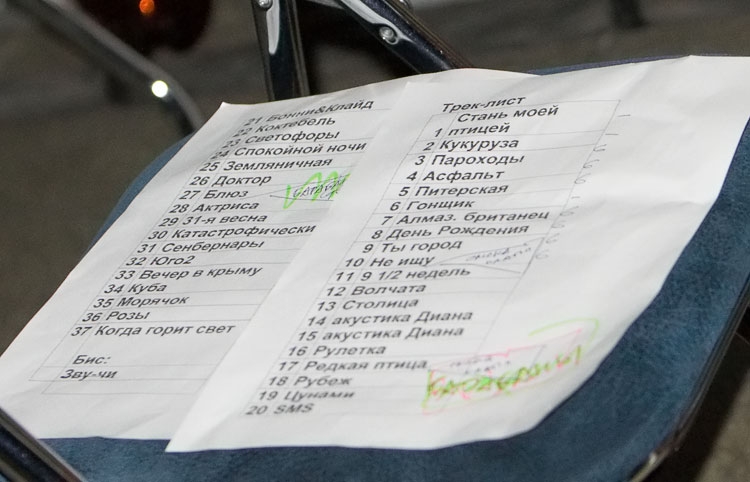 21 Бонни&Клайд
22 Коктебель
23 Светофоры
24 Спокойной ночи
25 Земляничная
26 Доктор
27 Блюз
28 Актриса
29 31-я весна
30 Катастрофически
31 Сенбернары
32 Юго2
33 Вечер в крыму
34 Куба
35 Морячок
36 Розы
37 Когда горит свет
Бис:
Зву-чи
Трек-лист
Стань моей
1 птицей
2 Кукуруза
3 Пароходы
4 Асфальт
5 Питерская
6 Гонщик
7 Алмаз. британец
8 День Рождения
9 Ты город
10 Не ищу
11 9 1/2 недель
12 Волчата
13 Столица
14 акустика Диана
15 акустика Диана
16 Рулетка
17 Редкая птица
18 Рубеж
19 Цунами
20 SMS